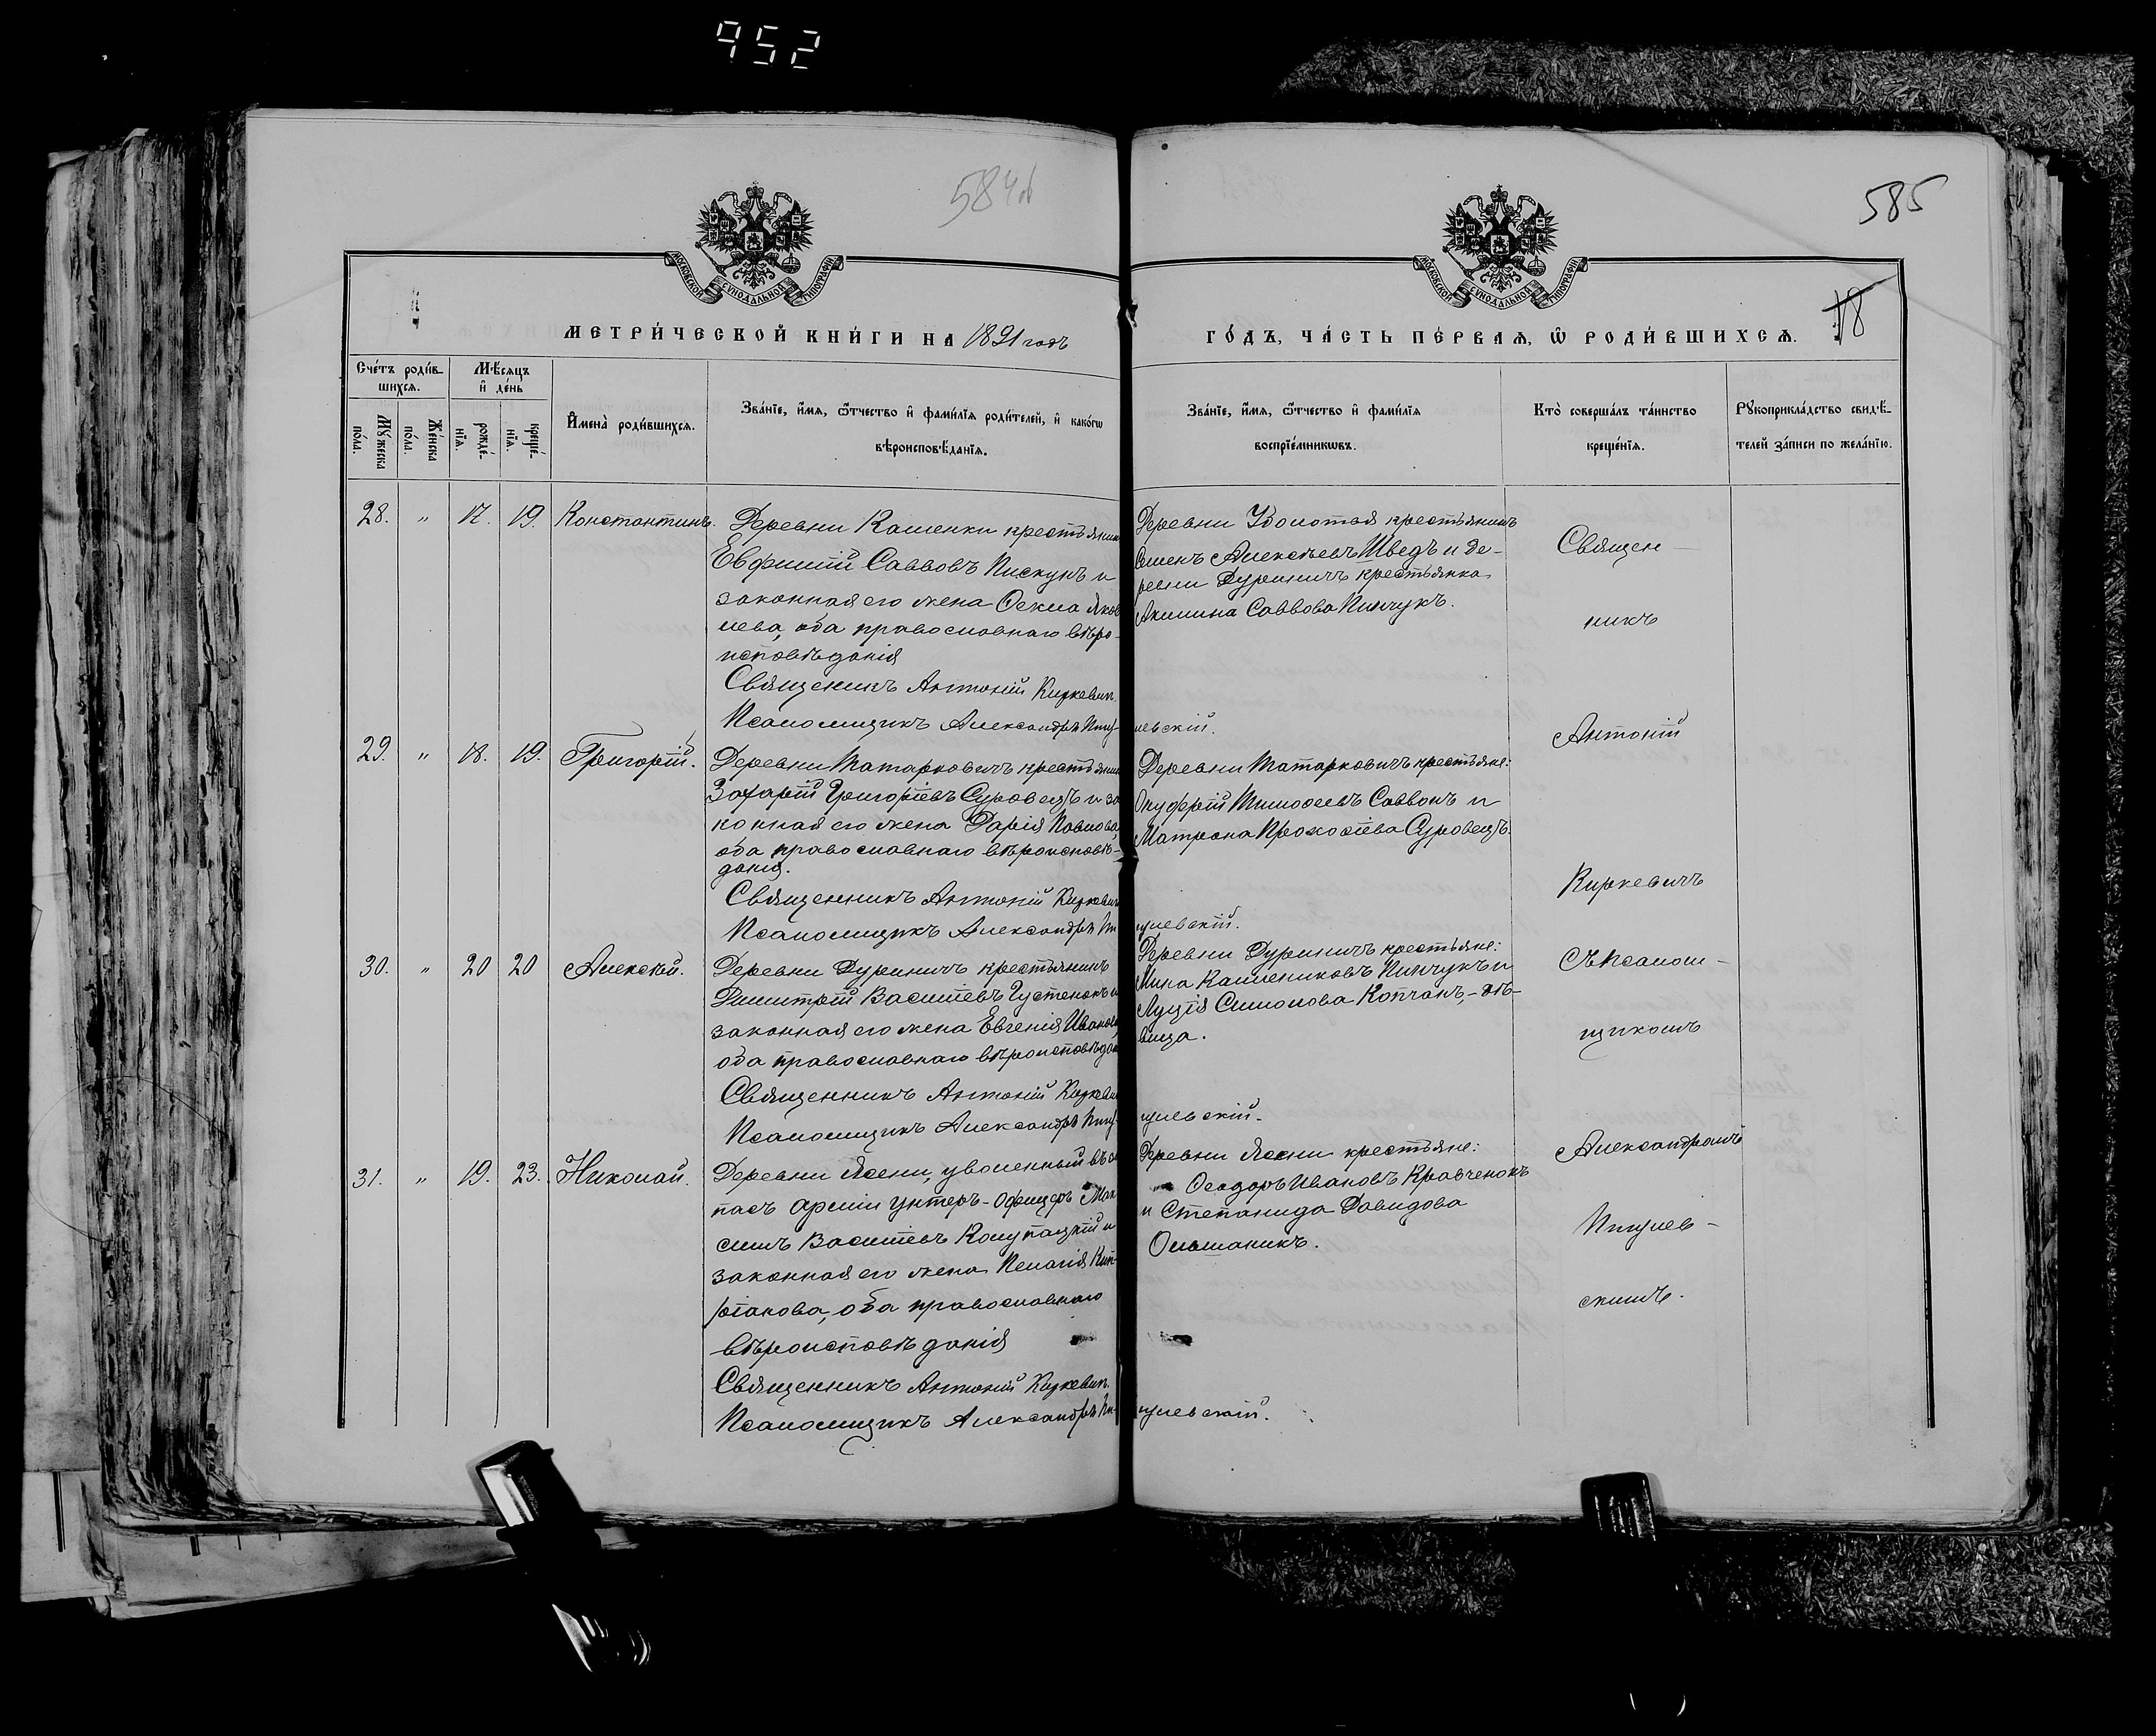 952
584об
585
18
МОСКОВСКОЙ СУНОДАЛЬНОЙ ТИПОГРАФІИ
МОСКОВСКОЙ СУНОДАЛЬНОЙ ТИПОГРАФІИ
МЕТРИ́ЧЕСКОЙ КНИ́ГИ НА 1891 годъ
ГО́ДЪ, ЧА́СТЬ ПЕ́РВАѦ, Ѡ РОДИ́ВШИХСѦ.
Сче́тъ роди́в-
шихсѧ.
Мꙋ́жеска
по́ла.
Же́нска
по́ла.
Мѣ́сѧцъ
и҆ де́нь
рожде́-
нїѧ.
креще́-
нїѧ.
И҆мена̀ роди́вшихсѧ.
Зва́нїе, и҆́мѧ, ѻ҆́тчество и҆ фами́лїѧ роди́телей, и҆ како́гѡ
вѣроисповѣ́данїѧ.
Зва́нїе, и҆́мѧ, ѻ҆́тчество и҆ фами́лїѧ
воспрїе́мникѡвъ.
Кто̀ соверша́лъ та́инство
креще́нїѧ.
Рꙋкоприкла́дство свидѣ́-
телей за́писи по жела́нїю.
28. " 17. 19. Константинъ.
Деревни Каменки крестьянинъ
Евфимій Саввовъ Пискунъ и
законная его жена Ѳекла Яков
лева, оба православнаго вѣро-
исповѣданія
Священикъ Антоній Киркевич
Псаломщикъ Александръ Пищ-
левскій.
Деревни Уболотья крестьянинъ
Семенъ Алексѣевъ Шведъ и де-
ревни Дуриничъ крестьянка
Акилина Саввова Пинчукъ.
29. " 18. 19. Григорій.
Деревни Татарковичъ крестьянин
Захарій Григоріевъ Суровецъ и за
конная его жена Дарія Павлова,
оба православнаго вѣроисповѣ-
данія.
Священникъ Антоній Киркевич
Псаломщикъ Александръ Пи
щлевскій.
Деревни Татарковичъ крестьяне:
Онуфрій Тимоѳеевъ Саввонъ и
Матрона Прокопіева Суровецъ.
30. " 20 20 Алексѣй.
Деревни Дуриничъ крестьянинъ
Димитрій Васильевъ Густенокъ и
законная его жена Евгенія Иванова
оба православнаго вѣроисповѣдан
Священникъ Антоній Киркевич
Псаломщикъ Александръ Пищ-
щлевскій.
Деревни Дуриничъ крестьяне:
Мина Каллениковъ Пинчукъ и
Луція Симонова Копчанъ, - дѣ-
вица.
31. " 19. 23. Николай.
Деревни Ясени, уволенный въ за
пасъ арміи унтеръ-офицеръ Мак
симъ Васильевъ Колупацкій и
законная его жена Пелагія Кип-
ріанова, оба православнаго
вѣроисповѣданія
Священникъ Антоній Киркевич.
Псаломщикъ Александръ Пи-
щлевскій.
Деревни Ясени крестьяне:
Ѳеодоръ Ивановъ Кравченокъ
и Степанида Давидова
Ольшаникъ.
Священ-
никъ
Антоній
Киркевичъ
съ Псалом-
щикомъ
Александромъ
Пищлев-
скимъ.